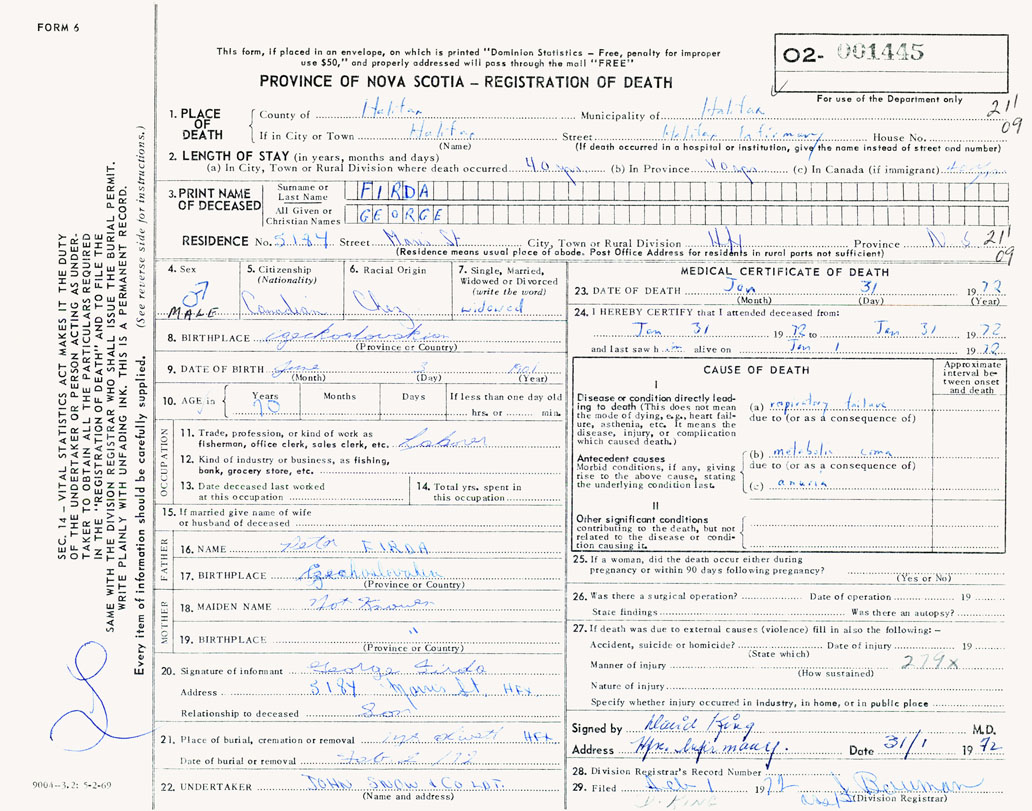 FORM 6
This form, if placed in an envelope, on which is printed "Dominion Statistics – Free, penalty for improper
use $50," and properly addressed will pass through the mail "FREE"
PROVINCE OF NOVA SCOTIA – REGISTRATION OF DEATH
02- 001445
For use of the Department only
211
09
1. PLACE OF DEATH
County of Halifax Municipality of Halifax
If in City or Town Halifax Street Halifax Infirmary House No.
(Name) (If death occurred in a hospital or institution, give the name instead of street and number)
2. LENGTH OF STAY (in years, months and days)
(a) In City, Town or Rural Division where death occurred 40 yrs (b) In Province 40 yrs (c) In Canada (if immigrant)
3. PRINT NAME OF DECEASED
Surname or Last Name FIRDA
All Given or Christian Names GEORGE
RESIDENCE No. 5184 Street Morris St City, Town or Rural Division Hfx Province N.S 211
09
(Residence means usual place of abode. Post Office Address for residents in rural parts not sufficient)
4. Sex MALE
5. Citizenship (Nationality) Canadian
6. Racial Origin Chez
7. Single, Married, Widowed or Divorced (write the word) widowed
8. BIRTHPLACE
(Province or Country)
9. DATE OF BIRTH June 3 1901
(Month) (Day) (Year)
10. AGE in Years 70 Months Days If less than one day old
hrs. or min.
OCCUPATION
11. Trade, profession, or kind of work as
fisherman, office clerk, sales clerk, etc. Laborer
12. Kind of industry or business, as fishing,
bank, grocery store, etc.
13. Date deceased last worked
at this occupation
14. Total yrs. spent in
this occupation
15. If married give name of wife
or husband of deceased
FATHER
16. NAME Peter FIRDA
17. BIRTHPLACE Czechoslovakia
(Province or Country)
MOTHER
18. MAIDEN NAME Not Known
19. BIRTHPLACE "
(Province or Country)
20. Signature of informant George Firda
Address 5184 Morris St HFX
Relationship to deceased Son
21. Place of burial, cremation or removal HFX
Date of burial or removal Feb 2 /72
22. UNDERTAKER JOHN SNOW & CO LDT.
(Name and address)
MEDICAL CERTIFICATE OF DEATH
23. DATE OF DEATH Jan 31 1972
(Month) (Day) (Year)
24. I HEREBY CERTIFY that I attended deceased from:
Jan 31 1972 to Jan 31 1972
and last saw him alive on Jan 1 1972
CAUSE OF DEATH
Approximate interval between onset and death
I
Disease or condition directly lead-
ing to death (This does not mean
the mode of dying, e.g., heart fail-
ure, asthenia, etc. It means the
disease, injury, or complication
which caused death.)
(a) respiratory failure
due to (or as a consequence of)
Antecedent causes
Morbid conditions, if any, giving
rise to the above cause, stating
the underlying condition last.
(b) metabolic coma
due to (or as a consequence of)
(c) anuria
II
Other significant conditions
contributing to the death, but not
related to the disease or condi-
tion causing it.
25. If a woman, did the death occur either during
pregnancy or within 90 days following pregnancy?
(Yes or No)
26. Was there a surgical operation? Date of operation 19
State findings Was there an autopsy?
27. If death was due to external causes (violence) fill in also the following: –
Accident, suicide or homicide? Date of injury 19
(State which)
Manner of injury 279X
(How sustained)
Nature of injury
Specify whether injury occurred in industry, in home, or in public place
Signed by David King M.D.
Address Hfx. Infirmary. Date 31/1 1972
28. Division Registrar's Record Number
29. Filed Feb 1 1972 J Bowman
D. KING (Division Registrar)
SEC. 14 – VITAL STATISTICS ACT MAKES IT THE DUTY
OF THE UNDERTAKER OR PERSON ACTING AS UNDER-
TAKER TO OBTAIN ALL THE PARTICULARS REQUIRED
IN THE "REGISTRATION OF DEATH" AND TO FILE THE
SAME WITH THE DIVISION REGISTRAR WHO SHALL ISSUE THE BURIAL PERMIT.
WRITE PLAINLY WITH UNFADING INK. THIS IS A PERMANENT RECORD.
Every item of information should be carefully supplied. (See reverse side for instructions.)
9004-3.2: 5-2-69